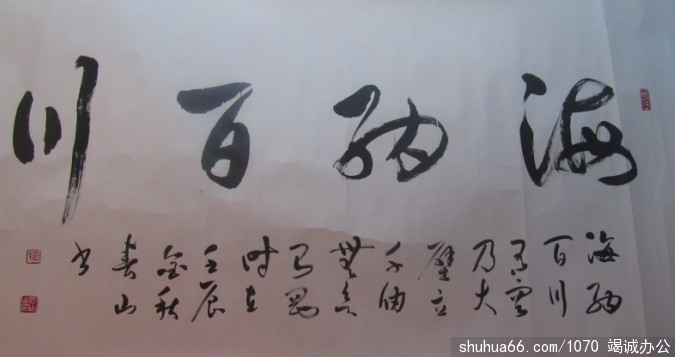 海纳百川
海纳
百川
有容
乃大
壁立
千仞
無欲
则刚
时在
壬辰
金秋
春山
书
shuhua66.com/1070 竭诚办公